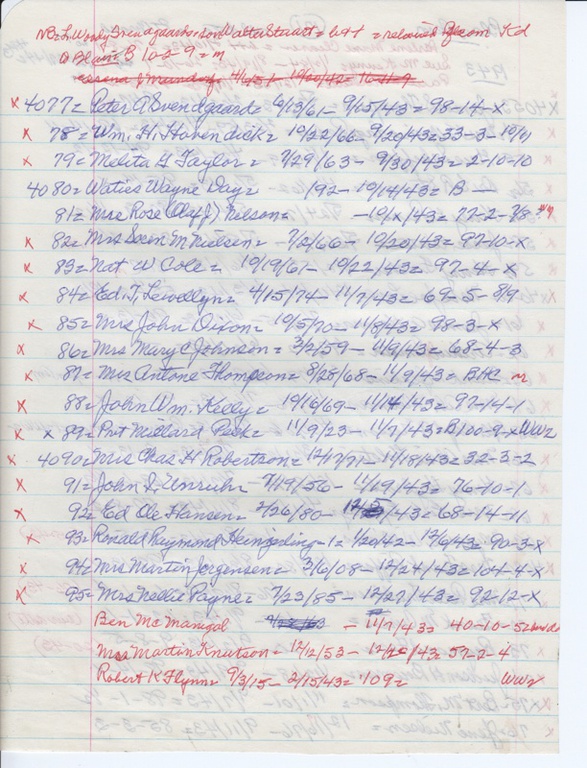 NB= L. Woody Svendgaard = son Walter Stuart = 6-9-1 = relocated from Ed
D Blain = B 102-9 = m
x 4077 = Peter A Svendgaard = 6/13/61 - 9/15/43 = 98-14-X
x 78 = Wm. H. Havendick = 10/22/66 - 9/20/43 = 33-3-10/11
x 79 = Melita G Taylor = 7/29/63 - 9/30/43 = 2-10-10
4080 = Waties Wayne Day = /92 - 10/14/43 = B -
81 = Mrs Rose (Olaf J) Nelson = -10/x/43 = 77-2-7/8
x 82 = Mrs Sven M Nielsen = 7/2/66 - 10/20/43 = 97-10-X
x 83 = Nat W Cole = 10/19/61 - 10/22/43 = 97-4-X
x 84 = Ed. T. Lewellyn = 4/15/74 - 11/7/43 = 69-5-8/9
x 85 = Mrs John Dixon = 10/5/70 - 11/8/43 = 98-3-X
x 86 = Mrs Mary C Johnson = 3/2/59 - 11/9/43 = 68-4-3
x 87 = Mrs Antone Thompson = 8/28/68 - 11/9/43 = BHC m
x 88 = John Wm. Kelly = 10/16/69 - 11/14/43 = 97-14-1
x x 89 = Pvt Millard Peck = 11/9/23 - 11/7/43 = B100-9-X WW2
x 4090 = Mrs Chas H Robertson = 12/17/71 - 11/18/43 = 32-3-2
x 91 = John I. Unruh = 7/19/56 - 11/19/43 = 76-10-1
x 92 = Ed Ole Hansen = 2/26/80 - 12/5/43 = 68-14-11
x 93 = Ronald Raymond = 1/20/42 - 12/6/43 = 90-3-X
x 94 = Mrs Martin Jorgensen = 3/6/08 - 12/24/43 = 104-4-X
x 95 = Mrs Nellie Payne = 7/23/85 - 12/27/43 = 92-12-X
Ben McManigal - 11/7/43 = 40-10-5
Mrs Martin Knutson = 12/12/53 - 43 = 57-2-4
Robert K Flynn = 9/3/15 - 2/15/43 = 109 = WW2